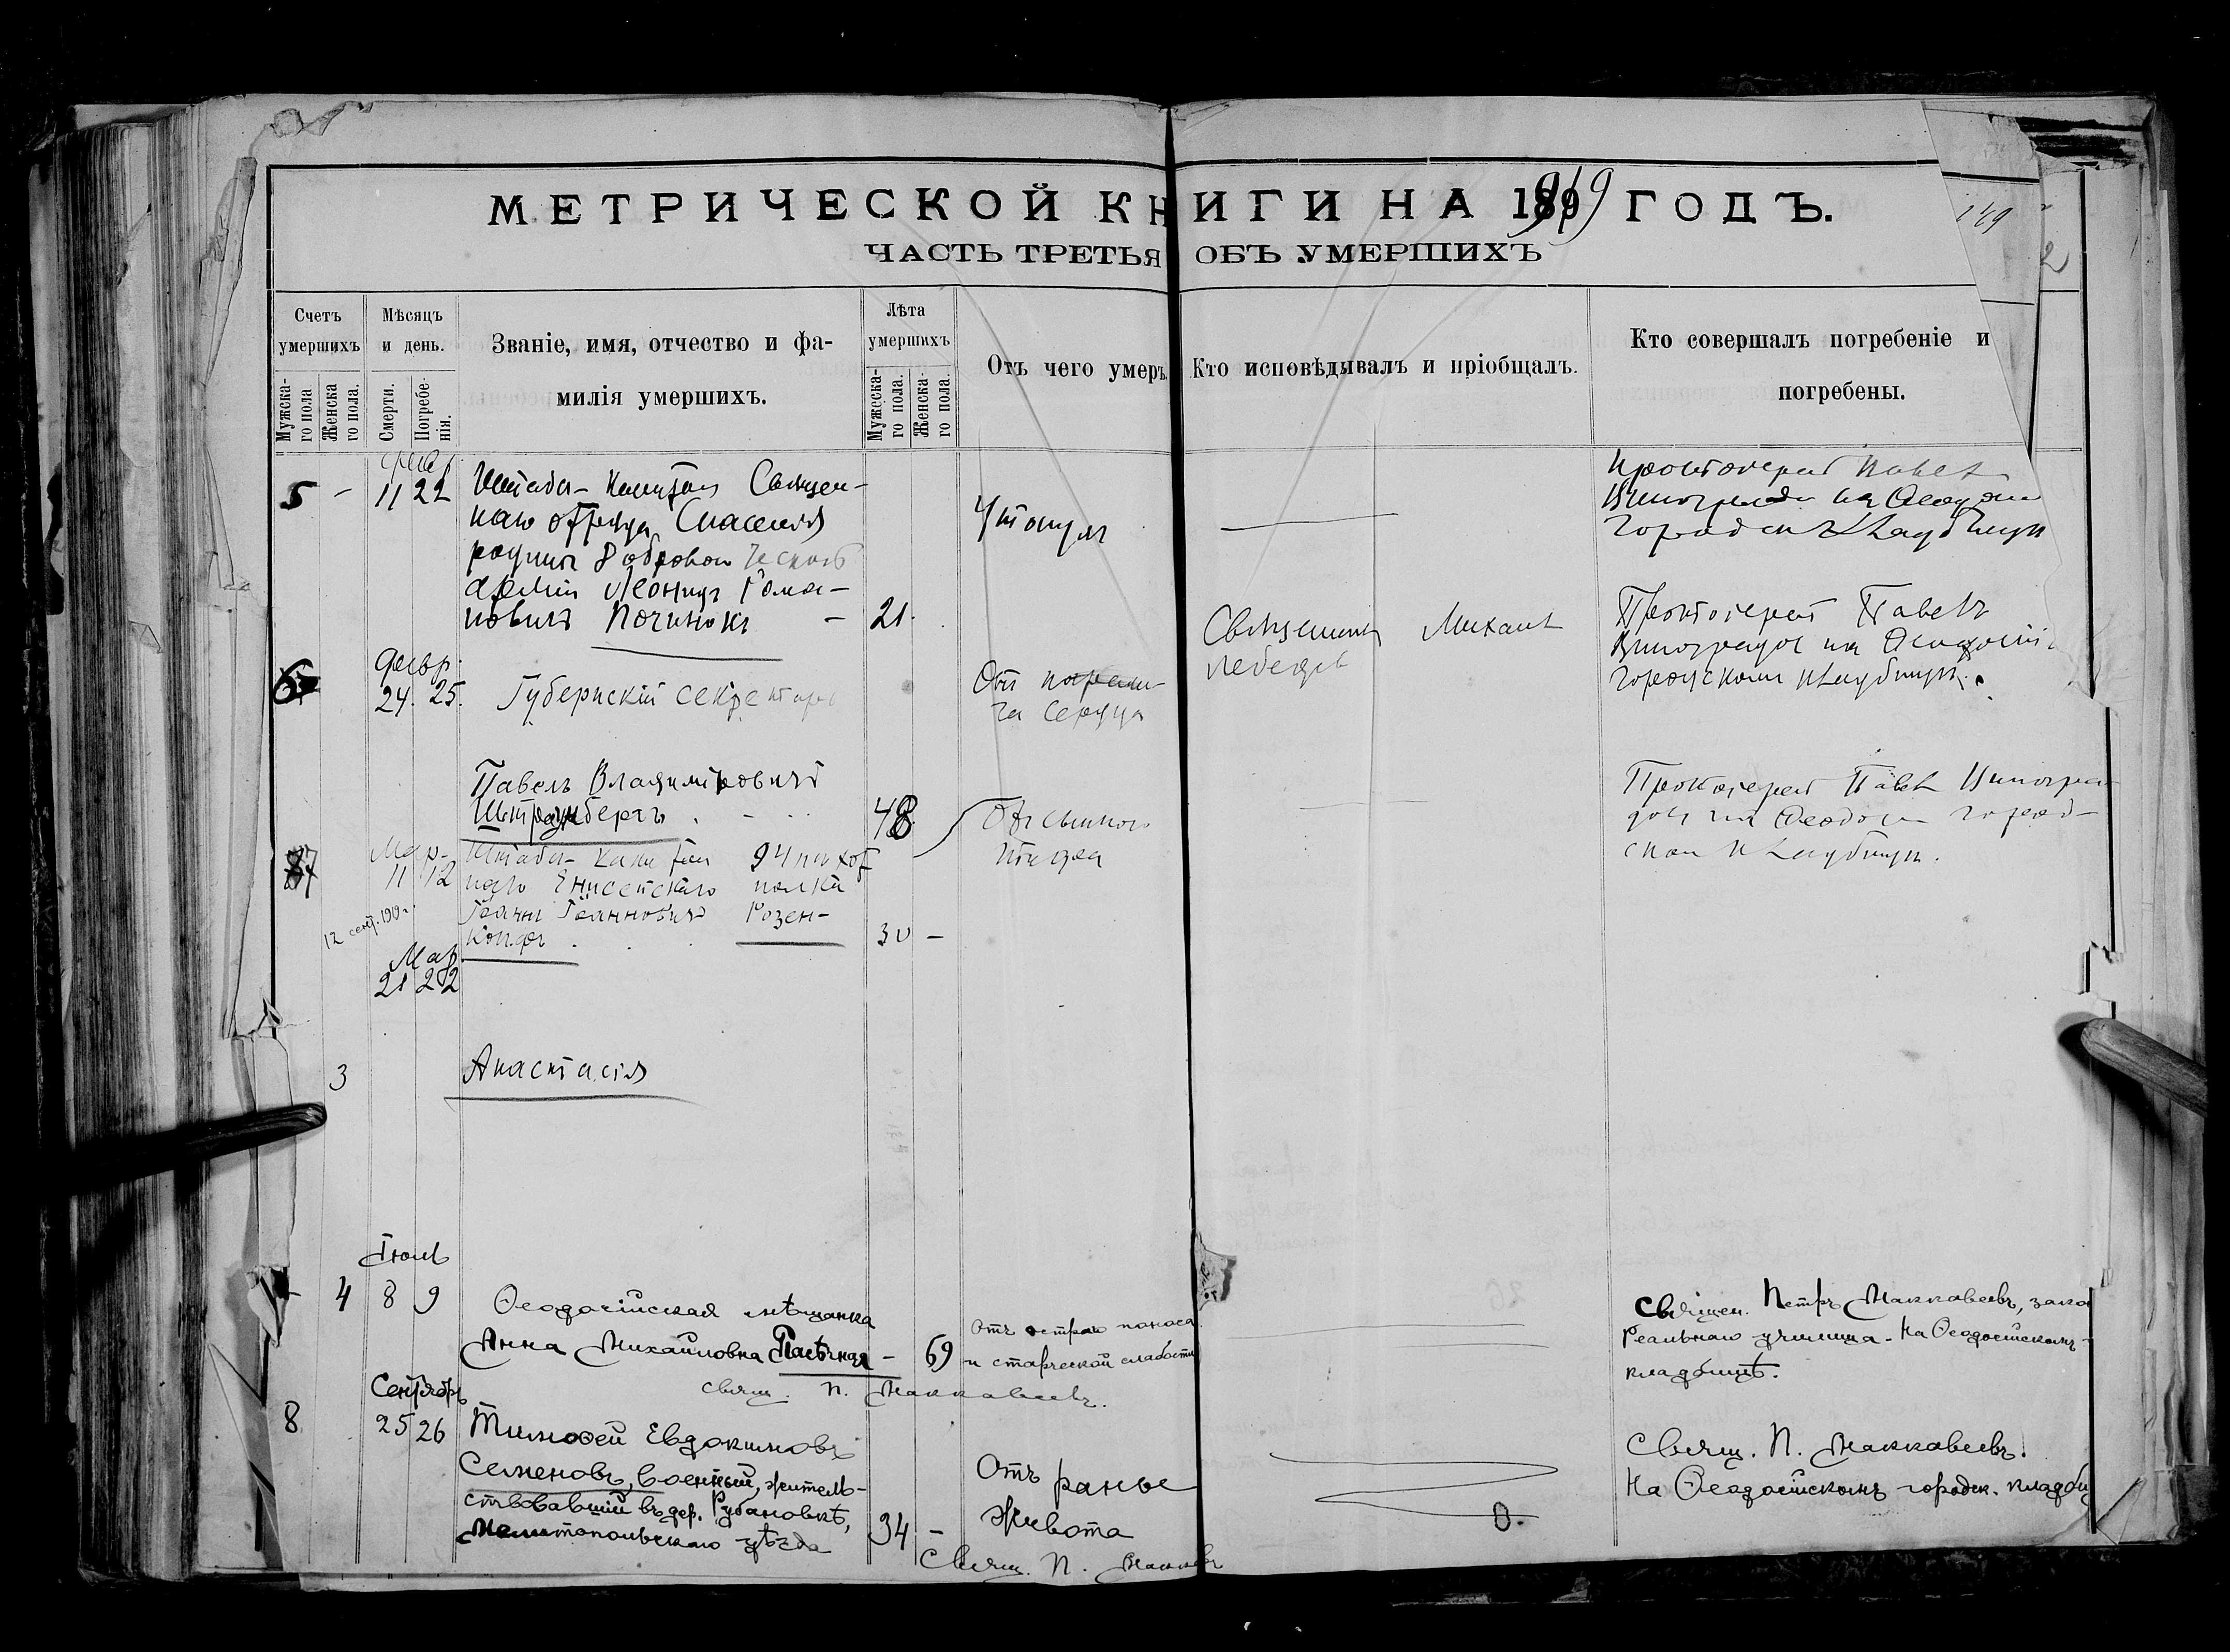 МЕТРИЧЕСКОЙ КНИГИ НА 1919 ГОДЪ.
149
ЧАСТЬ ТРЕТЬЯ ОБЪ УМЕРШИХЪ
2
Счетъ умершихъ
Мужска-го пола
Женска го пола.
Мѣсяцъ и день.
Смерти.
Погребе-нія.
Званіе, имя, отчество и фа-
милія умершихъ.
Лѣта умершихъ
Мужеска-го пола.
Женска-го пола.
Отъ чего умеръ.
Кто исповѣдывалъ и пріобщалъ.
Кто совершалъ погребеніе и
погребены.
5 -
11 22
Штабс-Капитан Священ-
наго отряда Спасения
родины Добровольческой
армии Леонид Рома-
нович Починок - 21.
Утонул
Протоиерей Павел
Виноградов на
городск кладбищи
6
февр.
24. 25.
Губернскій секретарь
Павелъ Владиміровичъ
Штромбергъ 48
От
сердца
Священник Михаил
Лебедев
Протоиерей Павелъ
Виноградов на
городском кладбищи.
7
Мар-
11 12
Штабс-капитан 94 пихот
наго Енисейскаго полка
Іоаннъ Іоанновичъ Розен-
копфъ 30 -
От сыпного
тифа
Протоиерей Павел Виногра
дов на Феодос город-
ском кладбищи.
12 сент. 1919 г.
Мар
21 22
3
Анастасія
Іюль
- 4 8 9
Ѳеодосійская мѣщанка
Анна Михайловна Пасѣчная - 69
Отъ остраго поноса
и старческой слабости
Священ. Петръ Маккавеевъ, зако
Реальнаго училища. На Ѳеодосійскомъ
кладбищѣ.
свящ. П. Маккавеевъ.
Сентябрь
8 25 26
Тимоѳей Евдокимовъ
Семеновъ, военный, житель-
ствовавшій въ дер. Рубановкѣ,
Мелитопольскаго уѣзда 34 -
Отъ раны
живота
Свящ. П. Маккавеевъ.
На Ѳеодосійскомъ городск. кладби
Свящ. П. Маккавеевъ